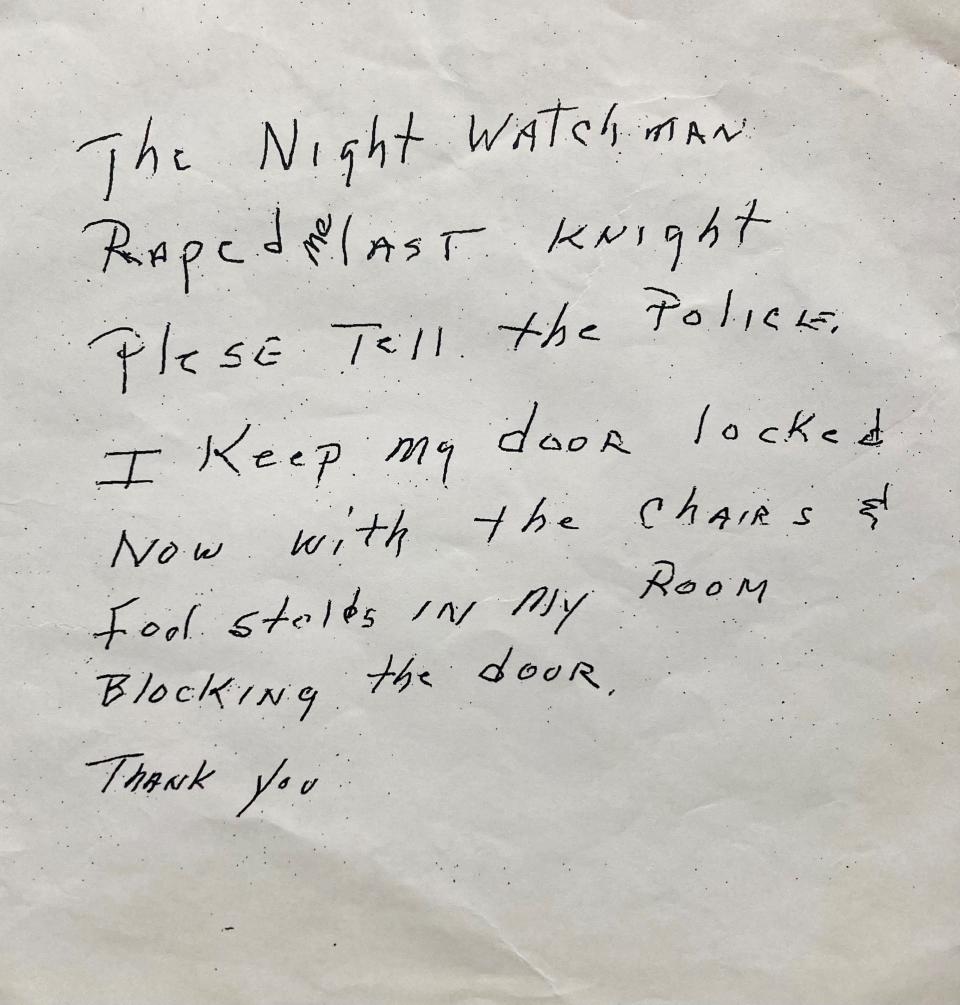 The Night WATchMAN
RAPed me lAST KNight
PleSE Tell the PolicE.
I Keep my dooR locked
Now with the ChAIRS &
Food in My Room
BlockINg the dooR.
ThANK You